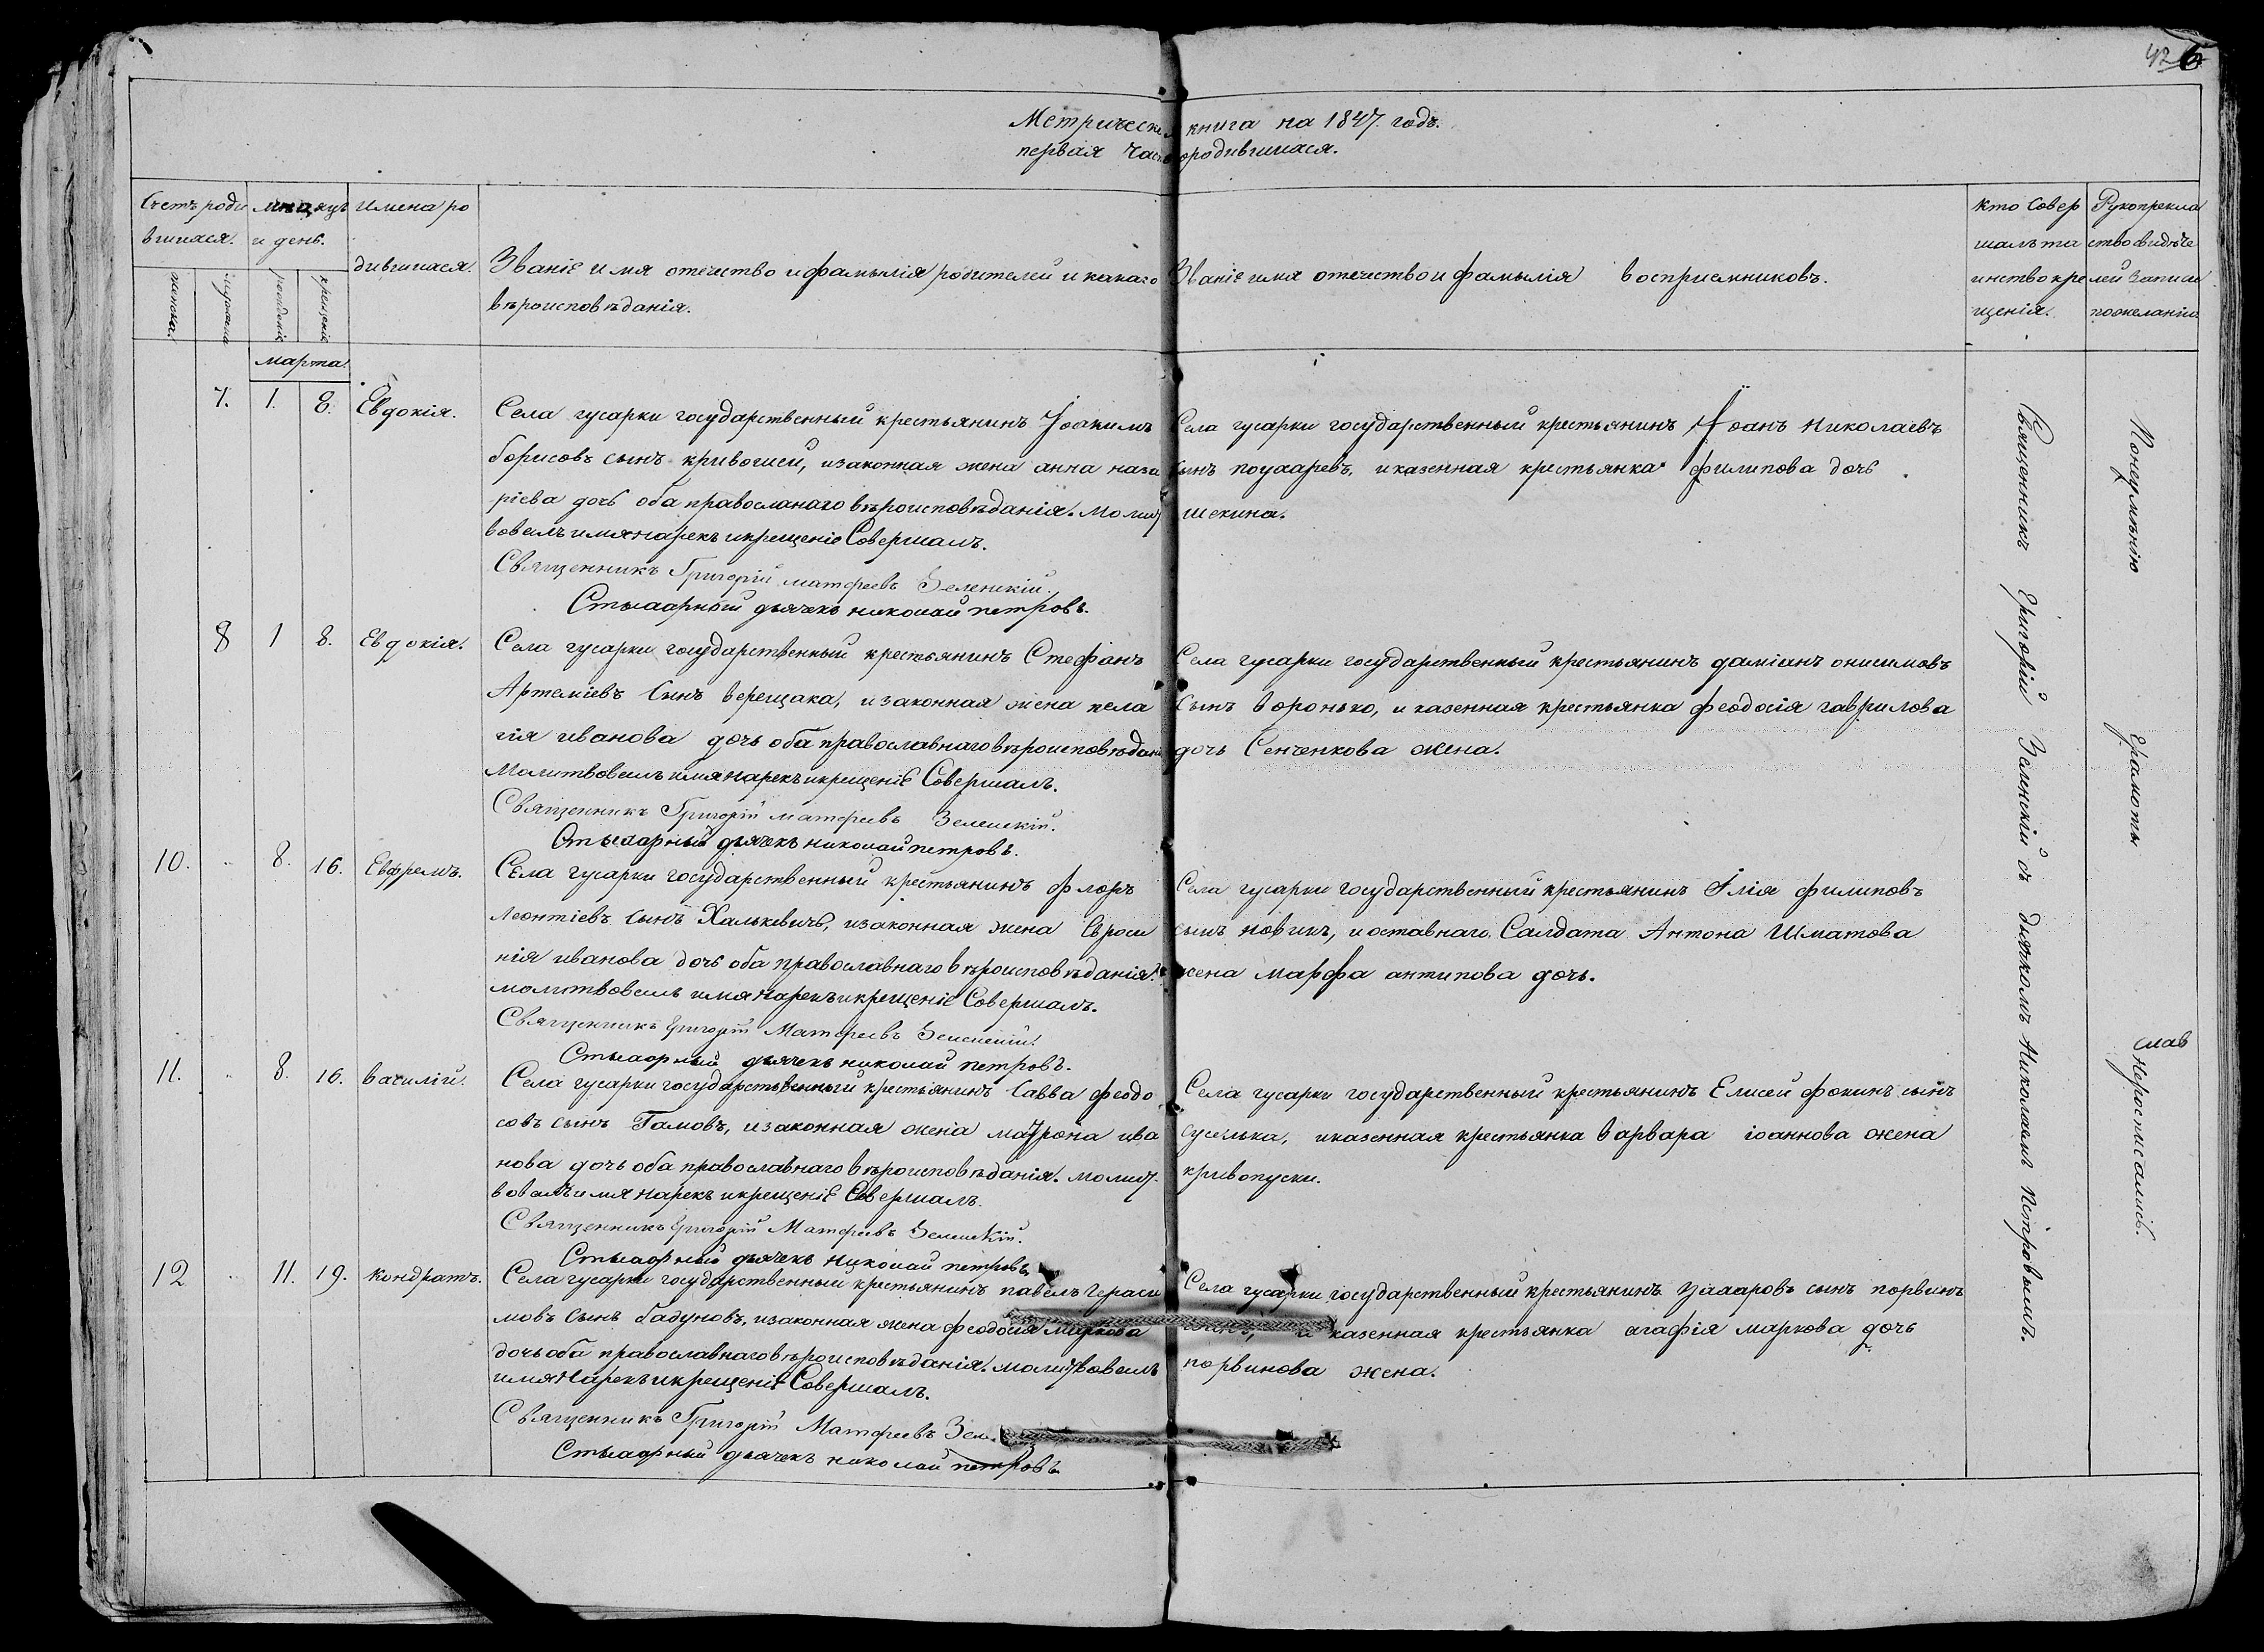 42 6
Метрическая книга на 1847. годъ.
первая часть ородившихся.
Счетъ роди
вшихся.
мѣсяцъ
и день.
Имена ро
дившихся.
Званіе имя отечество и фамылія родителей и какаго
вѣроисповѣданія.
Званіе имя отечество и фамылія воспріемниковъ.
кто совер
шалъ та
инство кре
щенія.
Рукоприкла
ство свидѣте
лей записи
по желанію.
женска.
рожденіе
крещеніе
марта.
7. 1. 8. Евдокія.
Села гусарки государственный крестьянинъ Іоакимъ
борисовъ сынъ кривошей, изаконная жена анна наза
ріева дочь оба православнаго вѣроисповѣданія. молит
вовалъ имянарекъ икрещеніе Совершалъ.
Священникъ Григорій матфеевъ Зеленскій.
Стихарный дьячекъ николай петровъ.
Села гусарки государственный крестьянинъ Іоанъ Николаевъ
сынъ поухаревъ, и казенная крестьянка филипова дочь
шекина.
8 1 8. Евдокія.
Села гусарки государственный крестьянинъ Стефанъ
Артеміевъ Сынъ верещака, изаконная жена пела
гія иванова дочь оба православнаго вѣроисповѣдані
Молитвовалъ имянарекъ икрещеніе Совершалъ.
Священникъ Григорій матфеевъ Зеленскій.
Стихарный дьячекъ николай петровъ.
Села гусарки государственный крестьянинъ даміанъ онисимовъ
Сынъ воронько, и казенная крестьянка феодосія гаврилова
дочь Сенченкова жена.
10. 8. 16. Евфремъ.
Села гусарки государственный крестьянинъ флоръ
Леонтіевъ Сынъ Халькевичь, изаконная жена Евроси
нія иванова дочь оба православнаго вѣроисповѣданія.
молитвовалъ имя нарекъ икрещеніе Совершалъ.
Священникъ Григорій Матфеевъ Зеленскій.
Стихарный дьячекъ николай петровъ.
Села гусарки государственный крестьянинъ Илія филиповъ
сынъ новикъ, и оставнаго Салдата Антона Шматова
жена марфа антипова дочь.
11. 8. 16. василій.
Села гусарки государственный крестьянинъ Савва феодо
совъ сынъ Гамовъ, изаконная жена матрона ива
нова дочь оба православнаго вѣроисповѣданія. молит
вовалъ имя нарекъ икрещеніе Совершалъ.
Священникъ Григорій Матфеевъ Зеленскій.
Стихарный дьячекъ николай петровъ
Села гусарки государственный крестьянинъ Елисей фокинъ сынъ
суслька, иказенная крестьянка варвара іоаннова жена
кривопуски.
12 11. 19. кондратъ.
Села гусарки государственный крестьянинъ павелъ гераси
мовъ сынъ бадуновъ, изаконная жена феодосія маркова
дочь оба православнаго вѣроисповѣданія. молитвовалъ
имянарекъ икрещеніе Совершалъ.
Священникъ Григорій Матфеевъ Зел
Стихарный дьячекъ николай петровъ.
Села гусарки государственный крестьянинъ Захаровъ сынъ порвинъ
и казенная крестьянка агафія маркова дочь
порвинова жена.
Священникъ Григорій Зеленскій съ дьячкомъ Николаемъ Петровымъ.
Понеумѣнію Грамоты слав неросписались.